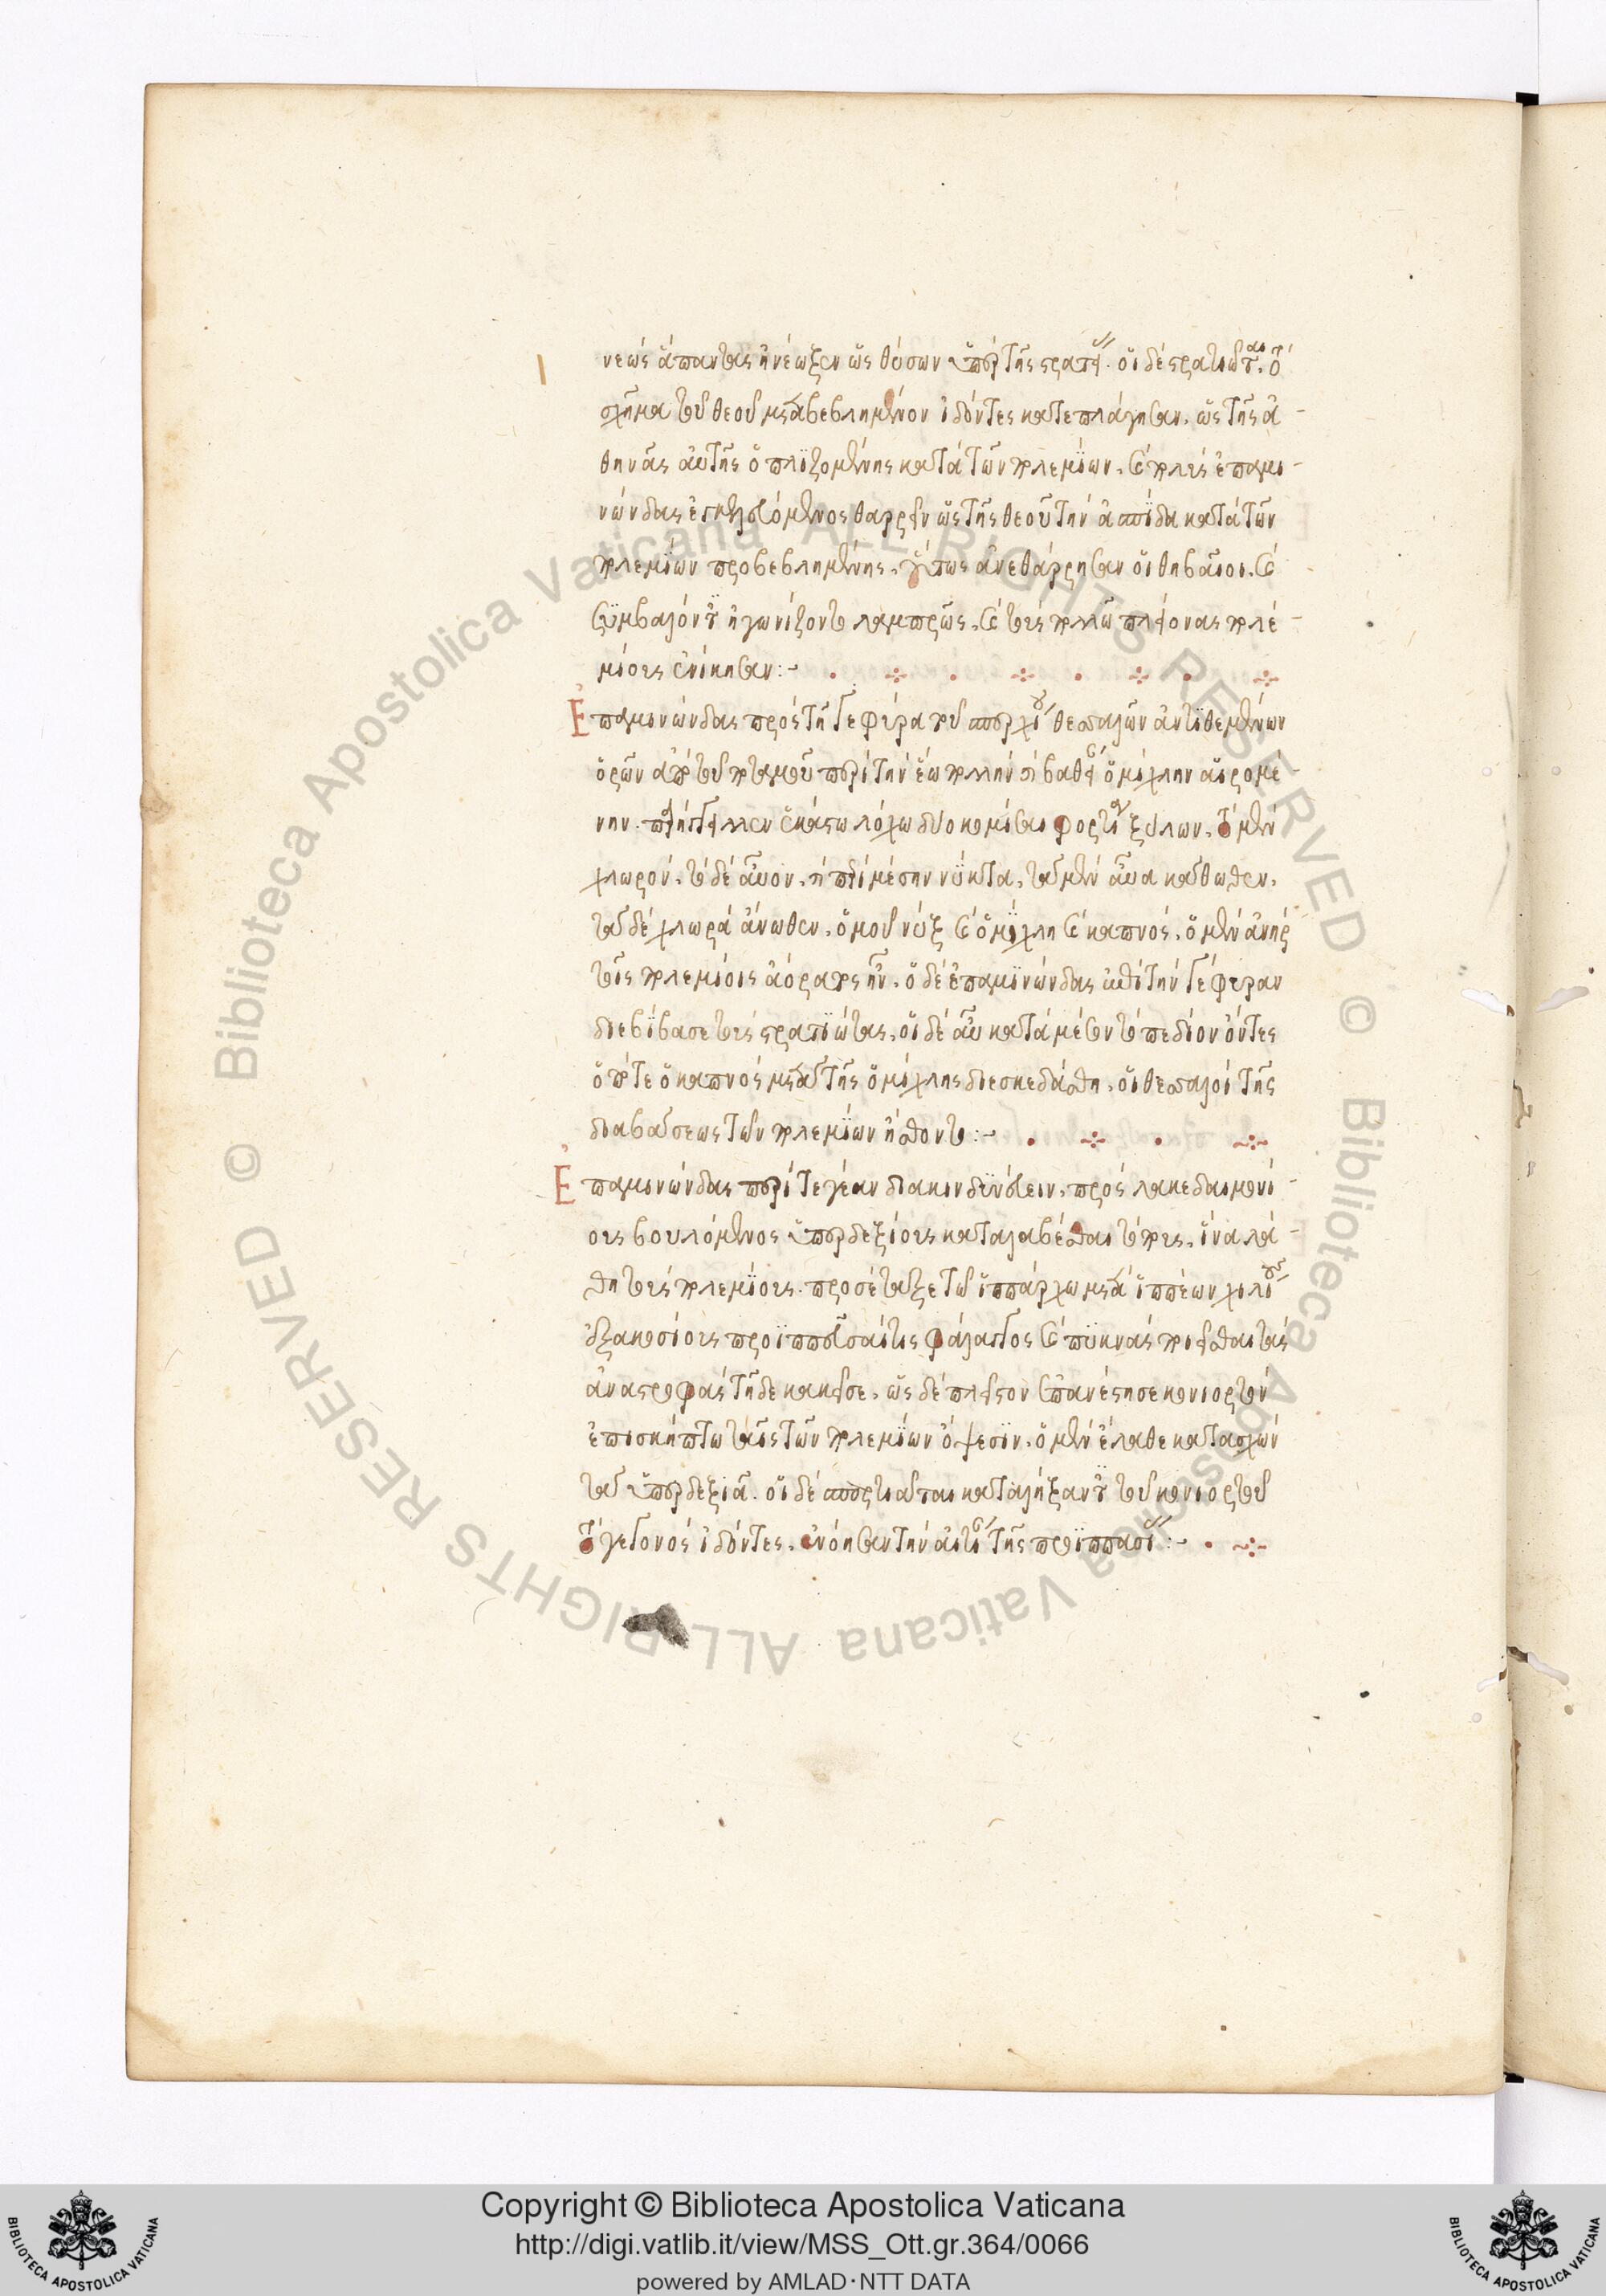 νεώς ἅπαντας ἠνέωξεν ὡς θύσων ὑπὲρ τῆς στρατιᾶς. οἱ δὲ στρατιῶται τὸ
σχῆμα τοῦ θεοῦ μεταβεβλημένον ἰδόντες κατεπλάγησαν. ὡς τῆς ἀ-
θηνᾶς αὐτῆς ὁπλιζομένης κατὰ τῶν πολεμίων. καὶ πολὺς ἐπαμι-
νώνδας θαρρεῖν ὡς τῆς θεοῦ τὴν ἀσπίδα κατὰ τῶν
πολεμίων προβεβλημένης. οὕτως ἀνεθάρρησαν οἱ θηβαῖοι. καὶ
συμβαλόντες ἠγωνίζοντο λαμπρῶς. καὶ τοὺς πολλῶ πλείονας πολε-
μίους ἐνίκησαν:-
Ἐπαμινώνδας πρὸς τῆ γεφύρα τοῦ σπερχειοῦ θεσσαλῶν ἀντιθεμένων
ὁρῶν ἀπὸ τοῦ ποταμοῦ περὶ τὴν ἕω πολλὴν καὶ βαθεῖαν ὁμίχλην αἰρομέ-
νην. παρήγγειλεν ἑκάστω λόχω δύο κομίσαι φορτία ξύλων. τὸ μὲν
χλωρόν. τὸ δὲ αὖον. καὶ περὶ μέσην νύκτα. τὰ μὲν αὖα κάτωθεν.
τὰ δὲ χλωρὰ ἄνωθεν. ὁμοῦ νὺξ καὶ ὁμίχλη καὶ καπνός. ὁ μὲν ἀνὴρ
τοῖς πολεμίοις ἀόρατος ἦν. ὁ δὲ ἐπαμινώνδας ἐπὶ τὴν γέφυραν
διεβίβασε τοὺς στρατιώτας. οἱ δὲ αὖ κατὰ μέσον τὸ πεδίον ὄντες
ὁπότε ὁ καπνὸς μετὰ τῆς ὁμίχλης διεσκεδάσθη. οἱ θεσσαλοὶ τῆς
διαβάσεως τῶν πολεμίων ἤσθοντο:-
Ἐπαμινώνδας περὶ τεγέαν διακινδυνεύειν. πρὸς λακεδαιμονί-
ους βουλόμενος ὑπερδεξίους καταλαβέσθαι τόπους. ἵνα λά-
θη τοὺς πολεμίους. προσέταξε τῶ ἱππάρχω μετὰ ἱππέων χιλίων
ἑξακοσίους προϊππεῦσαι τῆς φάλαγγος καὶ πυκνὰς ποιεῖσθαι τὰς
ἀναστροφὰς τῆδε κἀκεῖσε. ὡς δὲ πλεῖστον ἐπανέστησε κονιορτὸν
ἐπισκήπτω ταῖς τῶν πολεμίων ὄψεσιν. ὁ μὲν ἔλαθε κατασχὼν
τὰ ὑπερδεξιᾶ. οἱ δὲ σπαρτιᾶται καταλήξαντος τοῦ κονιορτοῦ
τὸ γεγονὸς ἰδόντες. ἐνόησαν τὴν αἰτίαν τῆς προϊππασίας:-
Copyright © Biblioteca Apostolica Vaticana
http://digi.vatlib.it/view/MSS_Ott.gr.364/0066
powered by AMLAD·NTT DATA
BIBLIOTECA APOSTOLICA VATICANA
BIBLIOTECA APOSTOLICA VATICANA
© Biblioteca Apostolica Vaticana ALL RIGHTS RESERVED © Biblioteca Apostolica Vaticana ALL RIGHTS RESERVED